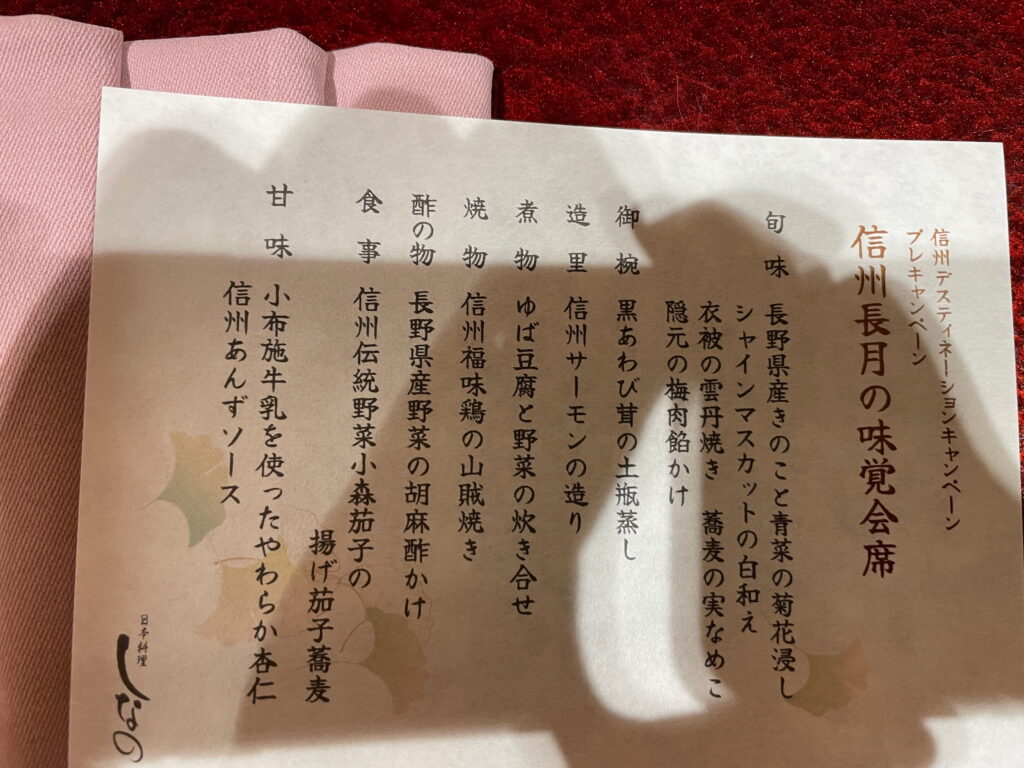 信州デスティネーションキャンペーン
プレキャンペーン
信州長月の味覚会席
旬味 長野県産きのこと青菜の菊花浸し
シャインマスカットの白和え
衣被の雲丹焼き 蕎麦の実なめこ
隠元の梅肉餡かけ
御椀 黒あわび茸の土瓶蒸し
造里 信州サーモンの造り
煮物 ゆば豆腐と野菜の炊き合せ
焼物 信州福味鶏の山賊焼き
酢の物 長野県産野菜の胡麻酢かけ
食事 信州伝統野菜小森茄子の
揚げ茄子蕎麦
甘味 小布施牛乳を使ったやわらか杏仁
信州あんずソース
日本料理
しなの